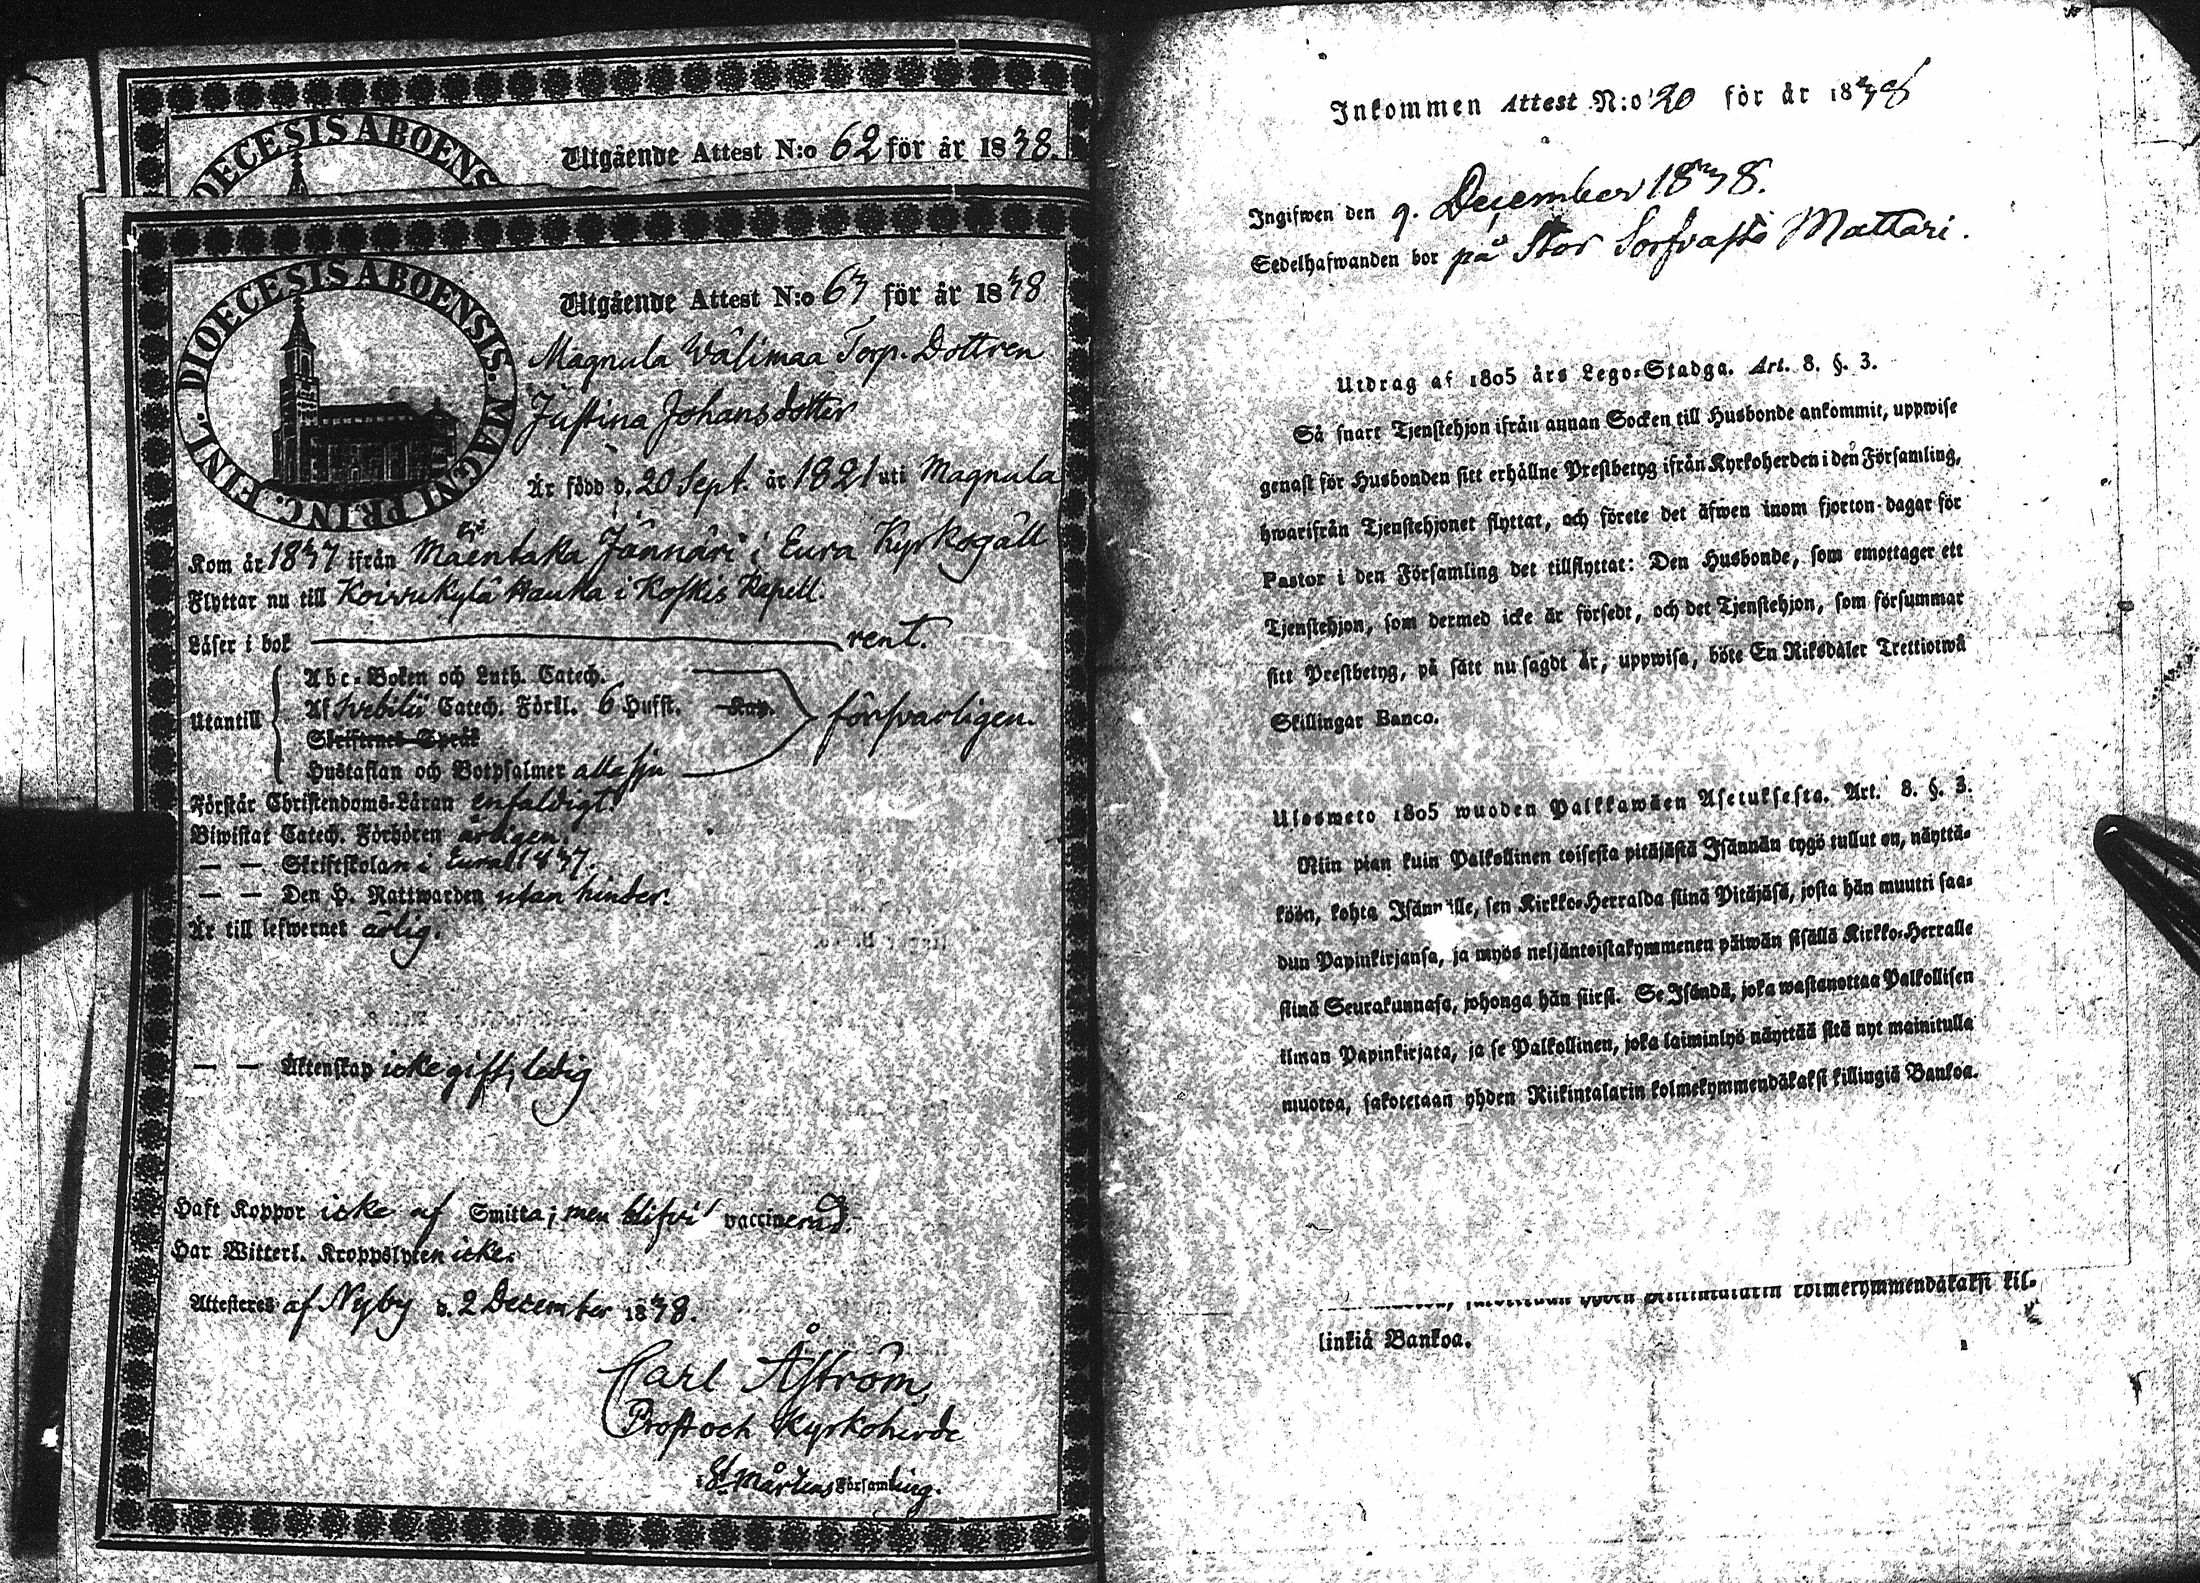 DIOECESIS ABOENS
Utgående Attest N:o 62 för år 1838.
FINL. DIOECESIS ABOENSIS. MAGNI PRINC.
Utgående Attest N:o 63 för år 1838
Magnula Wälimaa Torp. Dottren
Justina Johansdotter
Är född d. 20 Sept. år 1821 uti Magnula
Kom år 1837 ifrån Mäentaka Jännäri i Eura Kyrkogäll
Flyttar nu till Koivukylä Hauka i Koskis Kapell.
Läser i bok rent.
Utantill
Abc-Boken och Luth. Catech.
Af Svebilii Catech. Förkl. 6 Hufst. Kap. försvarligen.
Skriftenes Språk
Hustaflan och Botpsalmer alla sju
Förstår Christendoms-Läran enfaldigt.
Biwistat Catech. Förhören årligen.
— — Skriftskolan i Eura 1837.
— — Den H. Nattwarden utan hinder.
Är till lefwernet ärlig.
— — Äktenskap icke gift, ledig
Haft Koppor icke af Smitta; men blifvit vaccinerad.
Har Witterl. Kroppslyten icke.
Attesteres af Nyby d. 2 December 1838.
Carl Åström,
Prost och Kyrkoherde
St Mårtens Församling.
Inkommen Attest N:o 20 för år 1838
Ingifwen den 9. December 1838.
Sedelhafwanden bor på Stor Sorfvasto Mattari.
Utdrag af 1805 års Lego-Stadga. Art. 8. §. 3.
Så snart Tjenstehjon ifrån annan Socken till Husbonde ankommit, uppwise
genast för Husbonden sitt erhållne Prestbetyg ifrån Kyrkoherden i den Församling,
hwarifrån Tjenstehjonet flyttat, och förete det äfwen inom fjorton dagar för
Pastor i den Församling det tillflyttat: Den Husbonde, som emottager ett
Tjenstehjon, som dermed icke är försedt, och det Tjenstehjon, som försummar
sitt Prestbetyg, på sätt nu sagdt är, uppwisa, böte En Riksdaler Trettiotwå
Skillingar Banco.
Ulosweto 1805 wuoden Palkkawäen Asetuksesta. Art. 8. §. 3.
Niin pian kuin Palkollinen toisesta pitäjästä Isännän tygö tullut on, näyttä-
köön, kohta Isännälle, sen Kirkko-Herralda siinä Pitäjäsä, josta hän muutti saa-
dun Papinkirjansa, ja myös neljäntoistakymmenen päiwän sisällä Kirkko-Herralle
siinä Seurakunnasa, johonga hän siirsi. Se Isändä, joka wastanottaa Palkollisen
ilman Papinkirjata, ja se Palkollinen, joka laiminlyö näyttää sitä nyt mainitulla
muotoa, sakotetaan yhden Riikintalarin kolmekymmendäkaksi killingiä Bankoa.
kolmekymmendäkaksi kil-
linkiä Bankoa.